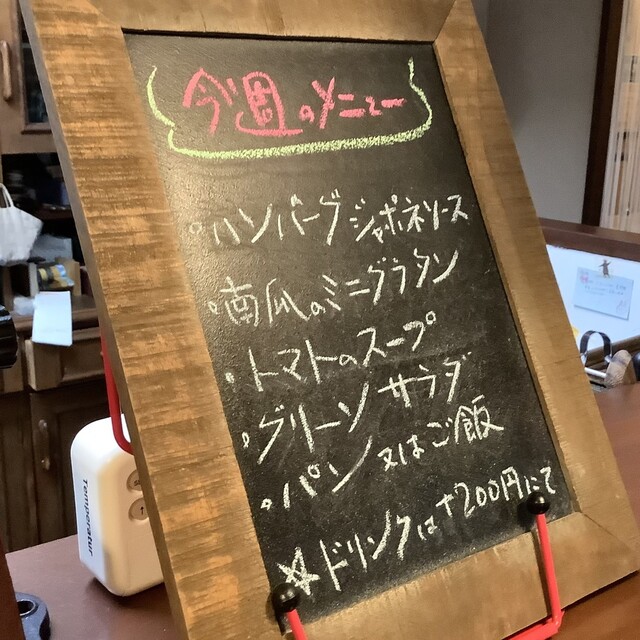 今週のメニュー
・ハンバーグジャポネソース
・南瓜のミニグラタン
・トマトのスープ
・グリーンサラダ
・パン又はご飯
☆ドリンクは+200円にて
Temperatur